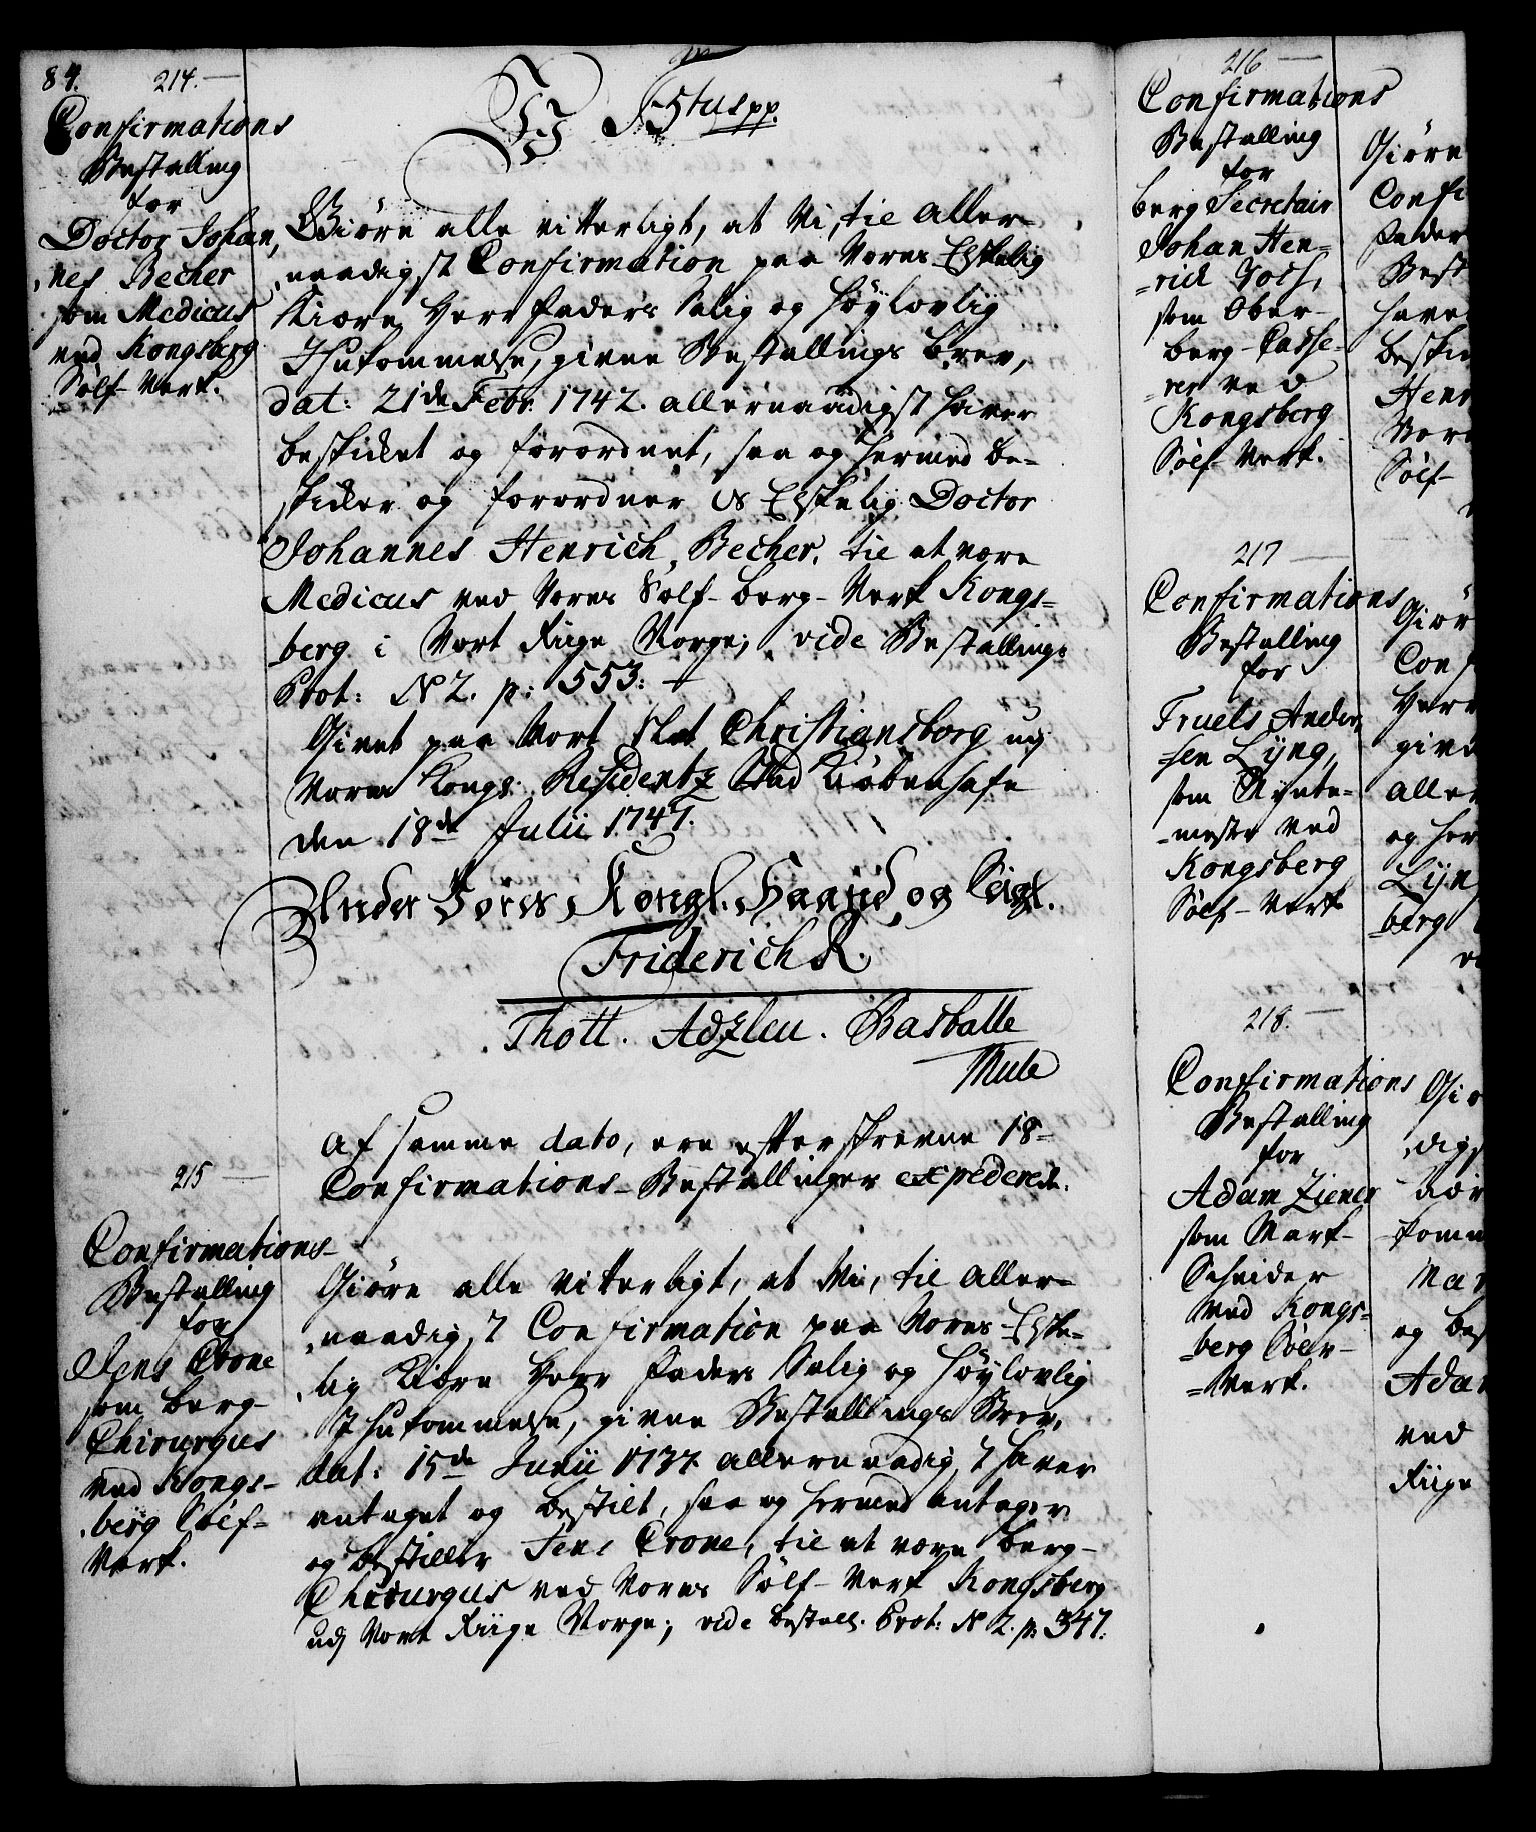 84.
214.
Confirmations
Bestalling
for
Doctor Johan,
,nes Becher
som Medicus
ved Kongsberg
Sølf Verk.
W F 5tus pp.
Giöre alle vitterligt, at Vi, til Aller-
,naadigst Confirmation paa Vores Elskelig
Kiære Herr Faders Salig og Höylovlig
Ihukommelse, givne Bestallings Brev,
dat: 21de Febr: 1742. allernaadigst haver
beskikket og forordnet, saa og hermed be-
skikker og forordner Os Elskelig Doctor
Johannes Henrich Becher, til at være
Medicus ved Vores Sölf-berg-Verk Kongs=
berg i Vort Riige Norge; vide Bestallings
Prot: No 2. p: 553:
Givet paa Vort Slot Christiansborg udj
Vores Kongl: Residentz Stad Kiöbenhafn
den 18de Julii 1747.
Under Vores Kongl. Haand og Seigl.
Friderich R.
Thott. Adzleu. Basballe
Mule
215
Af samme dato, ere efterskrevne 18-
Confirmations-Bestallinger expederede.
Confirmations-
Bestalling
for
Jens Crone
som Berg-
Chirurgus
ved Kongs-
,berg Sölf=
Verk.
Giöre alle Vitterligt, at Vi, til Aller-
,naadigst Confirmation paa Vores Elske-
,lig Kiære Herr Faders Salig og Höylovlig
Ihukommelse, givne Bestallings Brev,
dat: 15de Junii 1737 allernaadigst haver
antaget og bestilt, saa og hermed antager
og bestiller Jens Crone, til at være Berg-
Chirurgus ved Vores Sölf-Verk Kongsberg
udj Vort Riige Norge; vide Bestall. Prot: No 2. p: 347.
216
Confirmations
Bestalling
for
berg Secretair
Johan Hen=
=rick
som Ober-
berg-Casse-
=rer ved
Kongsberg
Sölf Verk.
217
Confirmations
Bestalling
for
Truels Ander,
=sen Lÿng,
som Mynte-
=mester ved
Kongsberg
Sölf-Verk
218.
Confirmations
Bestalling
for
Adam Ziener
som Mark-
Scheider
ved Kongs=
=berg Sölv-
=Verk.
Giöre
Confi
Fader
Best
have
beski
Henr
Vore
Sölf-
Giör
Con
Herr
givn
Alle
og her
Lÿn
=berg
Gi
,digs
kær
-komm
Mar
og bes
Adam
ved
Riige